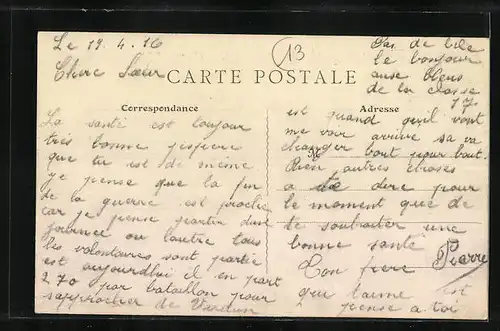 Le 19. 4. 16
13
Chere Sœur
Pas de bile
le bonjour
aux bleus
de la classe
17
CARTE POSTALE
Correspondance
La santé est toujour
très bonne jespere
que tu est de même
je pense que la fin
de la guerre est proche
car je pense partir dune
journee ou lautre tous
les volontaires sont partie
est aujourdhui il en part
270 par bataillon pour
sapprocher de Verdun
Adresse
est quand quil vont
me voir arrive sa va
changer bout pour bout.
Rien autres choses
a te dire pour
le moment que de
te souhaiter une
bonne sante
Ton frere Pierre
qui taime est
pense a toi